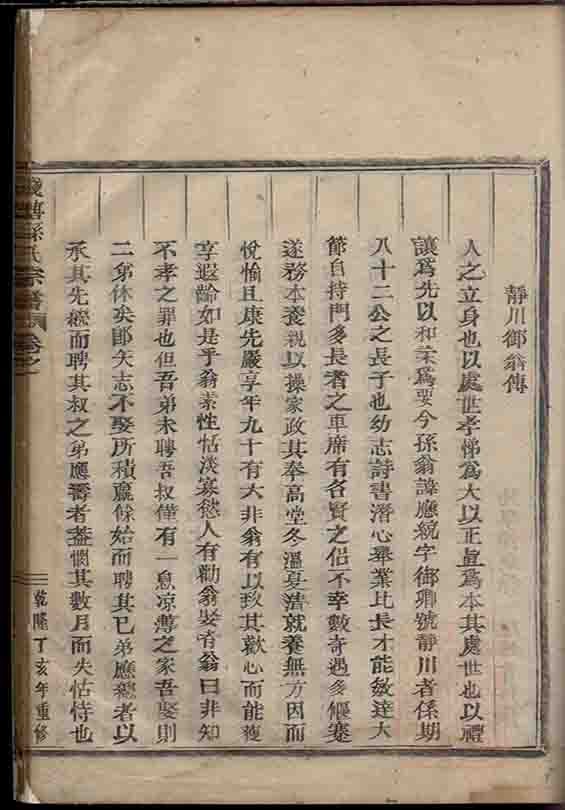 靜川御翁傳
人之立身也以處世孝悌為大以正直為本其處世也以禮
讓爲先以和柔爲要今孫翁諱應統字御卿號靜川者係期
八十二公之長子也幼志詩書潛心舉業比長才能敏達大
節自持門多長者之車席有名賢之侣不幸數奇遇多偃蹇
遂務本養親以操家政其奉高堂冬溫夏清就養無方因而
悅愉且康先嚴享年九十有六非翁有以致其歡心而能獲
享遐齡如是乎翁素性恬淡寡慾人有勸翁娶者翁曰非知
不孝之罪也但吾弟未聘吾叔僅有一息凉薄之家吾娶則
二弟休矣郎矢志不娶所積贏餘始而聘其已弟應總者以
承其先繼而聘其叔之弟應壽者蓋憫其數月而失怙恃也
孫氏宗譜
乾隆丁亥年重修